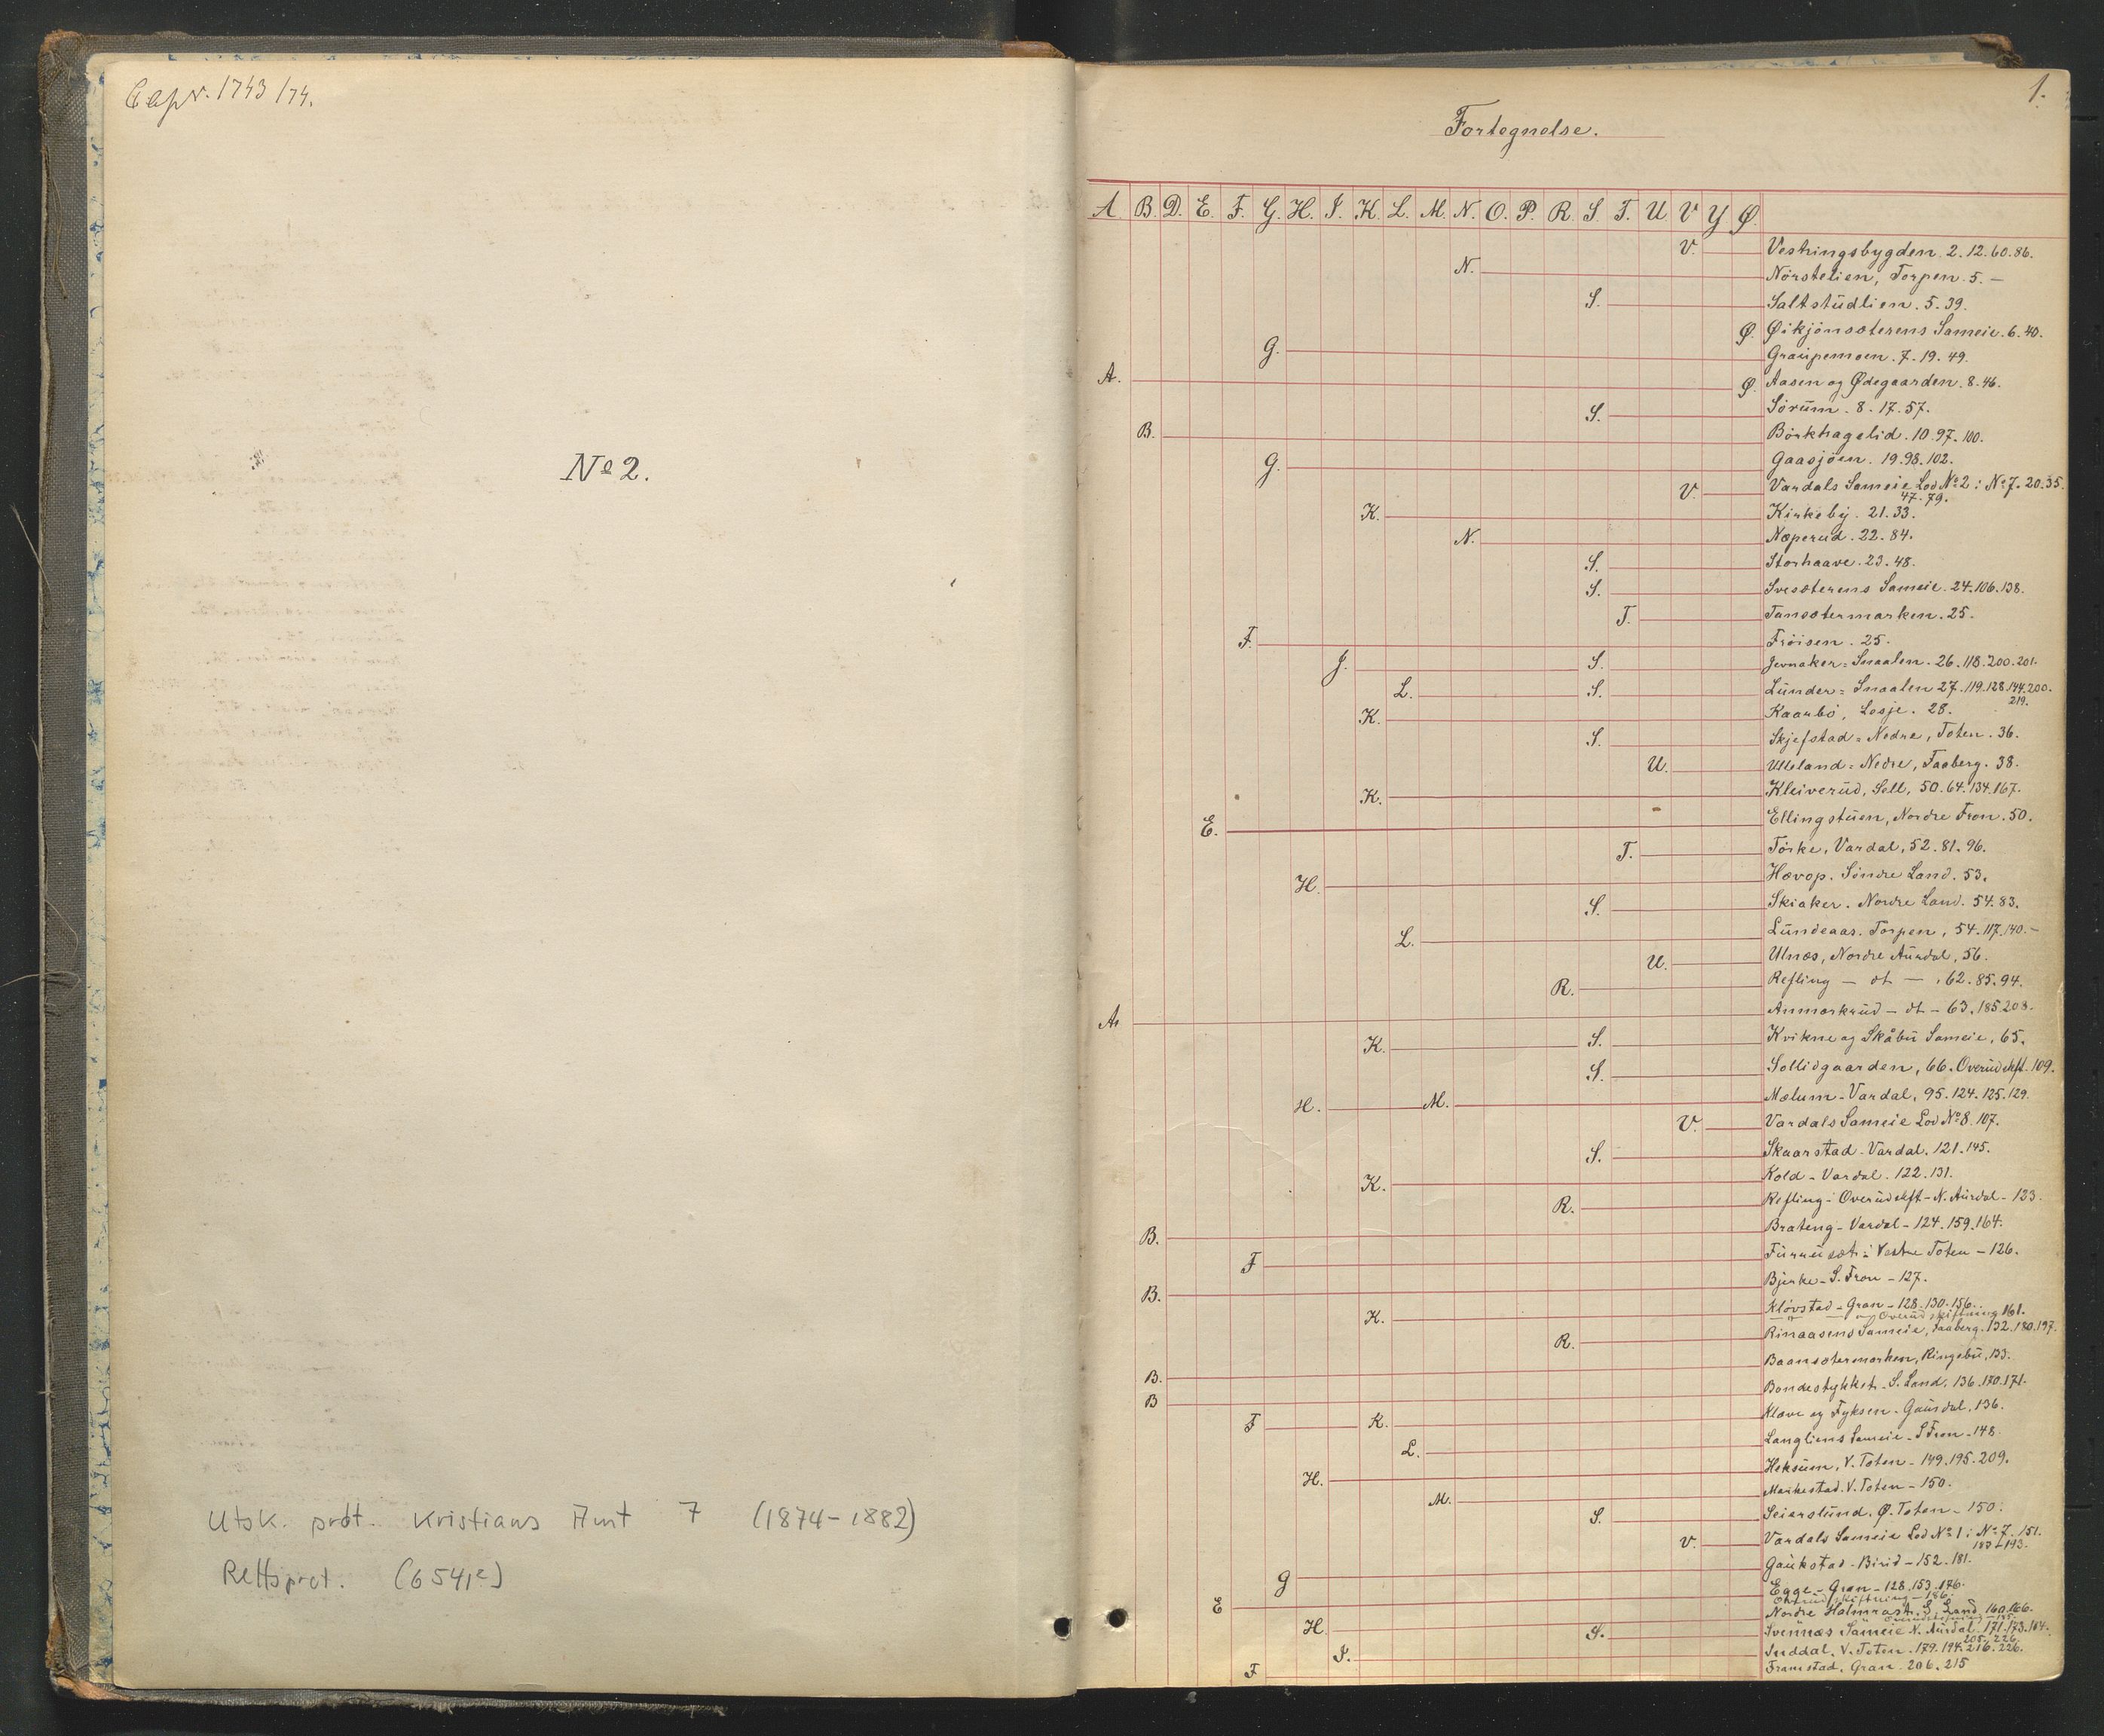 Eapr. 1743/74.
No 2.
Utsk. prot. Kristians Amt 7 (1874-1882)
Rettsprot. (6541e)
1.
Fortegnelse.
A. B. D. E. F. G. H. I. K. L. M. N. O. P. R. S. T. U V Y Ø.
V. Vestringsbygden. 2. 12. 60. 86.
N. Nörstelien, Torpen. 5. —
S. Saltstüdlien. 5. 39.
Ø. Øikjönsæterens Sameie. 6. 40.
G. Graüpemoen. 7. 19. 49.
A. Ø. Aasen og Ødegaarden. 8. 46.
S. Sörüm. 8. 17. 57.
B. Börkhagelid. 10. 97. 100.
G. Gaasjöen. 19. 98. 102.
V. Vardals Sameie Lod No 2 i No 7. 20. 35.
47. 79.
K. Kirkeby. 21. 33.
N. Næperud. 22. 84.
S. Storhaave. 23. 48.
S. Svesæterens Sameie. 24. 106. 138.
T. Tansætermarken. 25.
F. Fröisen. 25.
J. S. Jevnaker = Snaalen. 26. 118. 200. 201.
L. S. Lünder = Snaalen 27. 119. 128. 144. 200.
219.
K. Kaarbö, Lesje. 28.
S. Skjefstad = Nedre, Toten. 36.
U. Ulleland = Nedre, Faaberg. 38.
K. Kleiverüd, Sell, 50. 64. 134. 167.
E. Ellingstüen, Nordre Fron. 50.
T. Törke, Vardal, 52. 81. 96.
H. Hævop. Söndre Land. 53.
S. Skiaker. Nordre Land. 54. 83.
L. Lündeaas. Torpen, 54. 117. 140. —
U. Ulnæs, Nordre Aürdal, 56.
R. Refling — dt — , 62. 85. 94.
A. Anmarkrüd — dt — 63. 185. 208.
K. S. Kvikne og Skåbü Sameie, 65.
S. Sollidgaarden, 66. Overüdskft. 109.
H. M. Mælum - Vardal, 95. 124. 125. 129.
V. Vardals Sameie Lod No 8. 107.
S. Skaarstad - Vardal. 121. 145.
K. Kold - Vardal. 122. 131.
R. Refling - Overüdskft - N. Aürdal - 123.
B. Brateng - Vardal - 124. 159. 164.
F Fürrüsæt i Vestre Toten - 126.
B. Bjerke - S. Fron - 127.
K. Klövstad - Gran - 128. 130. 156.
Overüdskiftning 161.
R. Rinaasens Sameie, Faaberg. 132. 180. 197.
B. Baansætermarken, Ringebü, 133.
B Bondestykket - S. Land. 136. 170. 171.
F K. Klæve og Fyksen - Gaüsdal, 136.
L. Langliens Sameie - S Fron - 148.
H. Heksüm, V. Toten - 149. 195. 209.
M. Markestad. V. Toten - 150.
S. Seierslünd. Ø. Toten - 150.
V. Vardals Sameie Lod No 1 i No 7. 151.
187 - 193.
G Gaükstad - Birid - 152. 181.
E Egge - Gran - 128. 153. 176.
186.
H. Nordre Halmrast. S. Land 160. 166.
S. Svennæs Sameie N. Aürdal. 171. 173. 184.
205. 226.
I. Inddal, V. Toten. 179. 194. 216. 226.
F Framstad, Gran. 206. 215